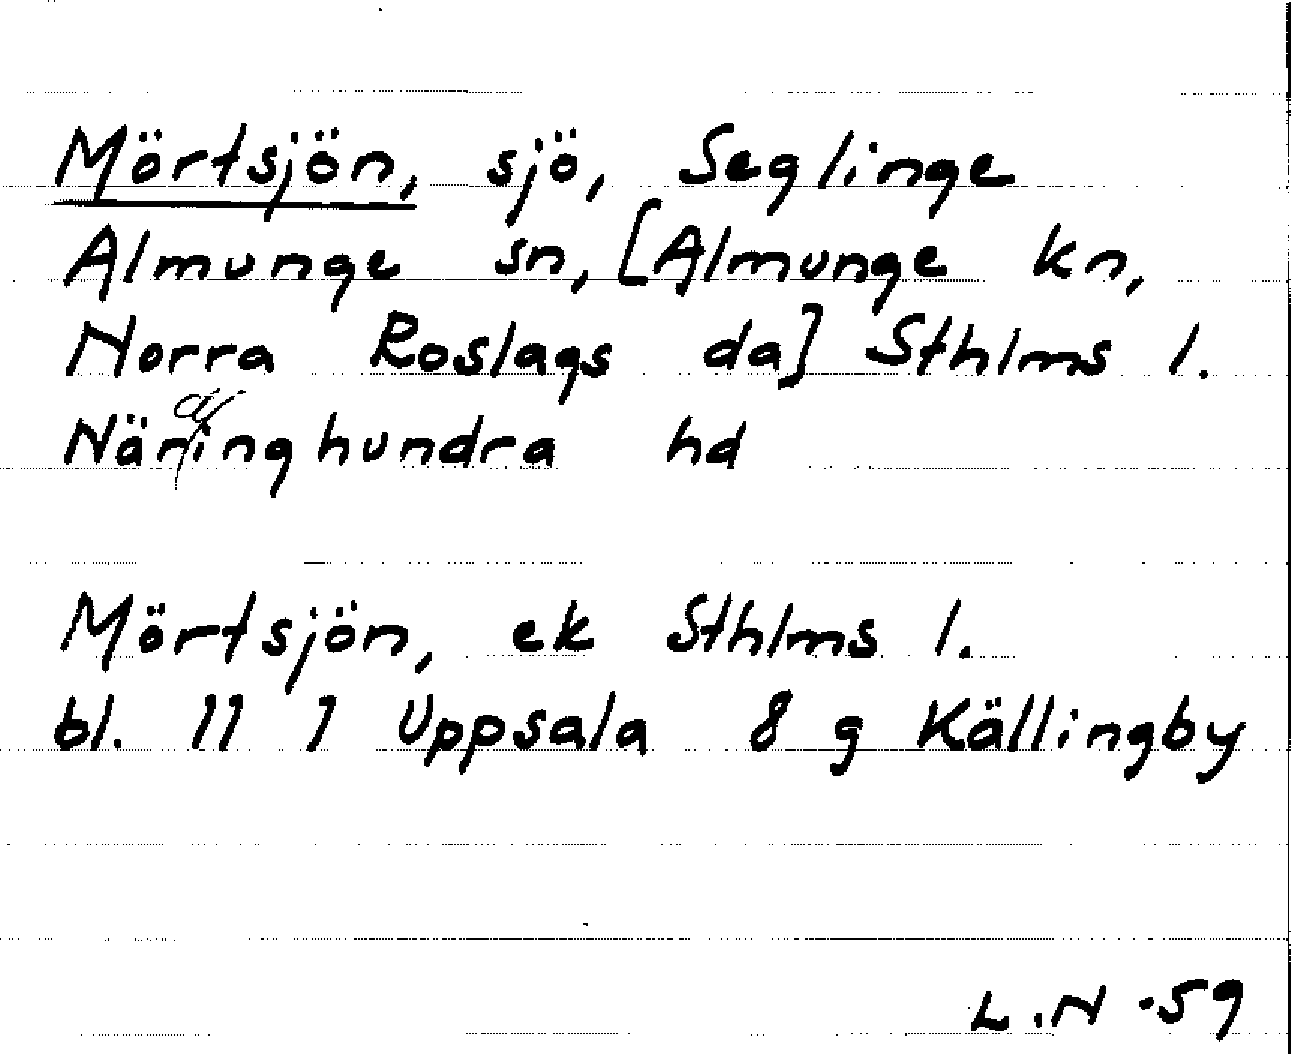 Mörtsjön, sjö, Seglinge
Almunge sn, [Almunge kn,
Norra Roslags da] Sthlms l.
Närdinghundra hd
Mörtsjön, ek Sthlms l.
bl. 11 I Uppsala 8 g Källingby
L.N -59